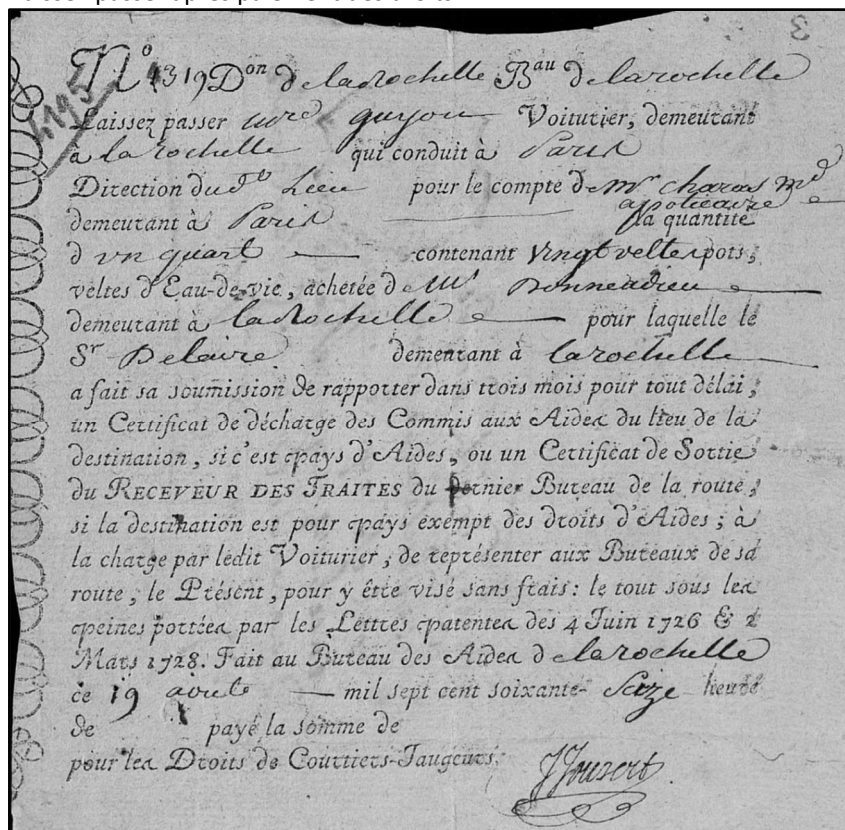 3
4195
N.º 1319 Don de la Rochelle Bau de la rochelle
Laissez passer guyon Voiturier, demeurant
à la rochelle qui conduit à Paris
Direction du d.º Lieu pour le compte de Mr charas md
apoticaire
demeurant à Paris la quantité
d'un quart contenant vingt veltes pots,
veltes d'Eau-de-vie, achetée de Mr Bonneadieu
demeurant à la Rochelle pour laquelle le
Sr Delaire demeurant à la rochelle
a fait sa soumission de rapporter dans trois mois pour tout délai,
un Certificat de décharge des Commis aux Aides du lieu de la
destination, si c'est pays d'Aides, ou un Certificat de Sortie
du RECEVEUR DES TRAITES du dernier Bureau de la route,
si la destination est pour pays exempt des droits d'Aides ; à
la charge par ledit Voiturier, de représenter aux Bureaux de sa
route, le Présent, pour y être visé sans frais : le tout sous les
peines portées par les Lettres patentes des 4 Juin 1726 & 2
Mars 1728. Fait au Bureau des Aides de la rochelle
ce 19 aoute mil sept cent soixante- Saize heure
de payé la somme de
pour les Droits de Courtiers-Jaugeurs.